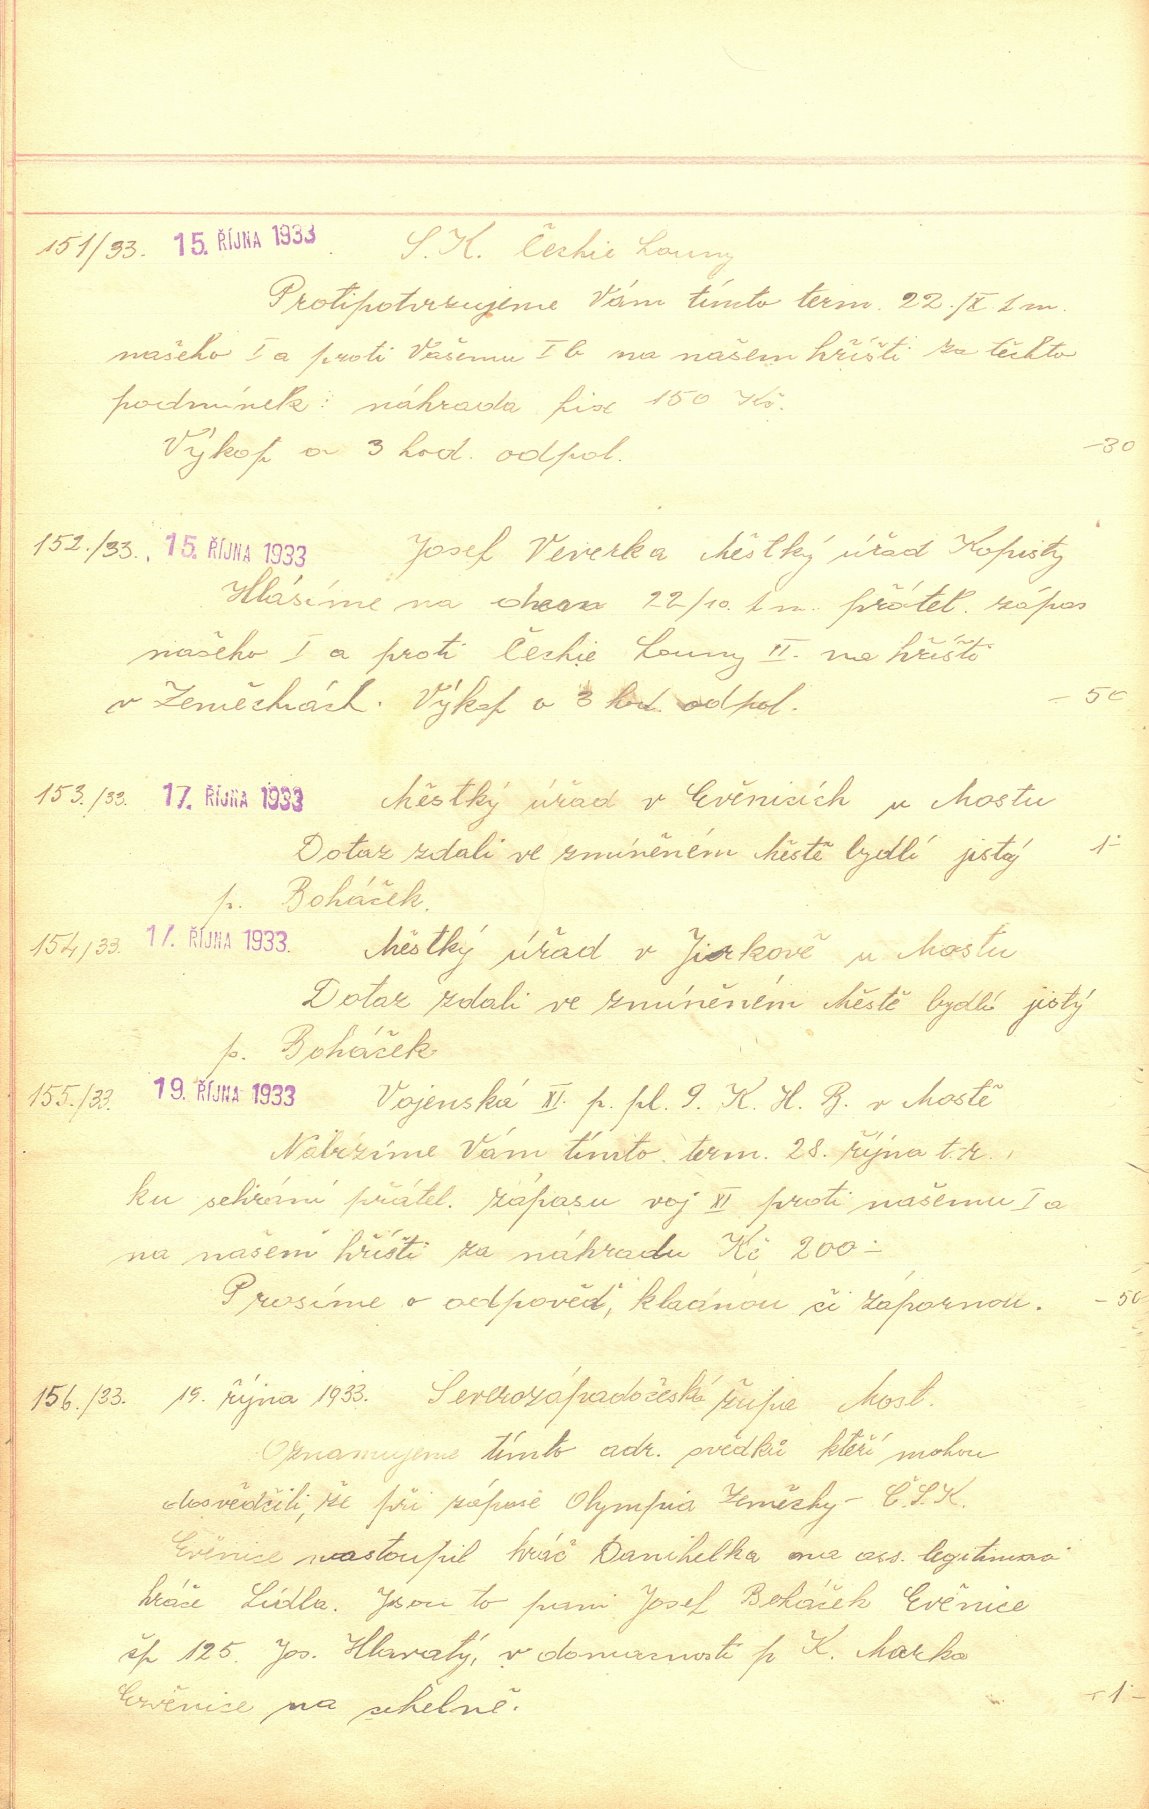 151/33. 15. ŘÍJNA 1933 S. K. Čechie Louny
Protipotvrzujeme Vám tímto term. 22./X t m.
našeho I a proti Vašemu I b na našem hřišti za těchto
podmínek: náhrada fix 150 Kč.
Výkop o 3 hod. odpol. -30
152./33. 15. ŘÍJNA 1933 Josef Veverka Městký úřad Kopisty
Hlásíme na 22/10. t m. přátel. zápas
našeho I a proti Čechie Louny II. na hřišti
v Zeměchách. Výkop o 3 hod. odpol. - 50
153./33. 17. ŘÍJNA 1933 Městký úřad v Ervěnicích u Mostu
Dotaz zdali ve zmíněném Městě bydlí jistý 1-
p. Boháček.
154/33. 17. ŘÍJNA 1933. Městký úřad v Jirkově u Mostu
Dotaz zdali ve zmíněném Městě bydlí jistý
p. Boháček
155./33. 19. ŘÍJNA 1933 Vojenská XI. p. pl. 9. K. H. B. v Mostě
Nabízíme Vám tímto term. 28. října t.r.
ku sehrání přátel. zápasu voj XI proti našemu I a
na našem hřišti za náhradu Kč 200-
Prosíme o odpověď, kladnou či zápornou. - 50
156./33. 19. října 1933. Severozápadočeská župa Most.
Oznamujeme tímto adr. svědků kteří mohou
dosvědčiti, že při zápase Olympia Zeměchy - Č.S.K.
Ervěnice nastoupil hráč Danihelka na
hráče Lídla. Jsou to pani Josef Boháček Ervěnice
čp 125. Jos. Hlavatý, v domácnosti p K. Marka
Ervěnice na cihelně. 1-